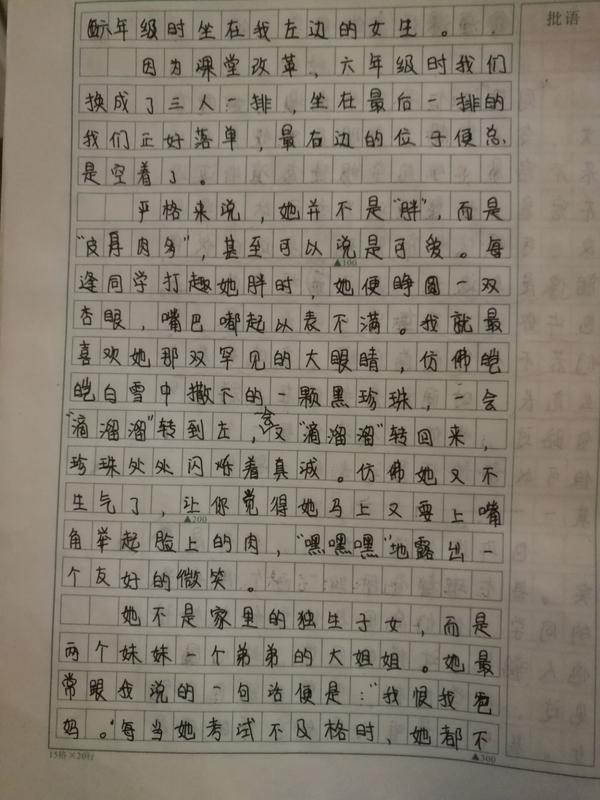 六年级时坐在我左边的女生。
因为课堂改革，六年级时我们
换成了三人一排，坐在最后一排的
我们正好落单，最右边的位子便总
是空着了。
严格来说，她并不是“胖”，而是
“皮厚肉多”，甚至可以说是可爱。每
▲100
逢同学打趣她胖时，她便睁圆一双
杏眼，嘴巴嘟起以表不满。我就最
喜欢她那双罕见的大眼睛，仿佛皑
皑白雪中撒下的一颗黑珍珠，一会
“滴溜溜”转到左，一会又“滴溜溜”转回来，
珍珠处处闪烁着真诚。仿佛她又不
生气了，让你觉得她马上又要上嘴
▲200
角举起脸上的肉，“嘿嘿嘿”地露出一
个友好的微笑。
她不是家里的独生子女，而是
两个妹妹一个弟弟的大姐姐。她最
常跟我说的一句话便是：“我恨我爸
妈。”每当她考试不及格时，她都不
15格×20行
▲300
批语